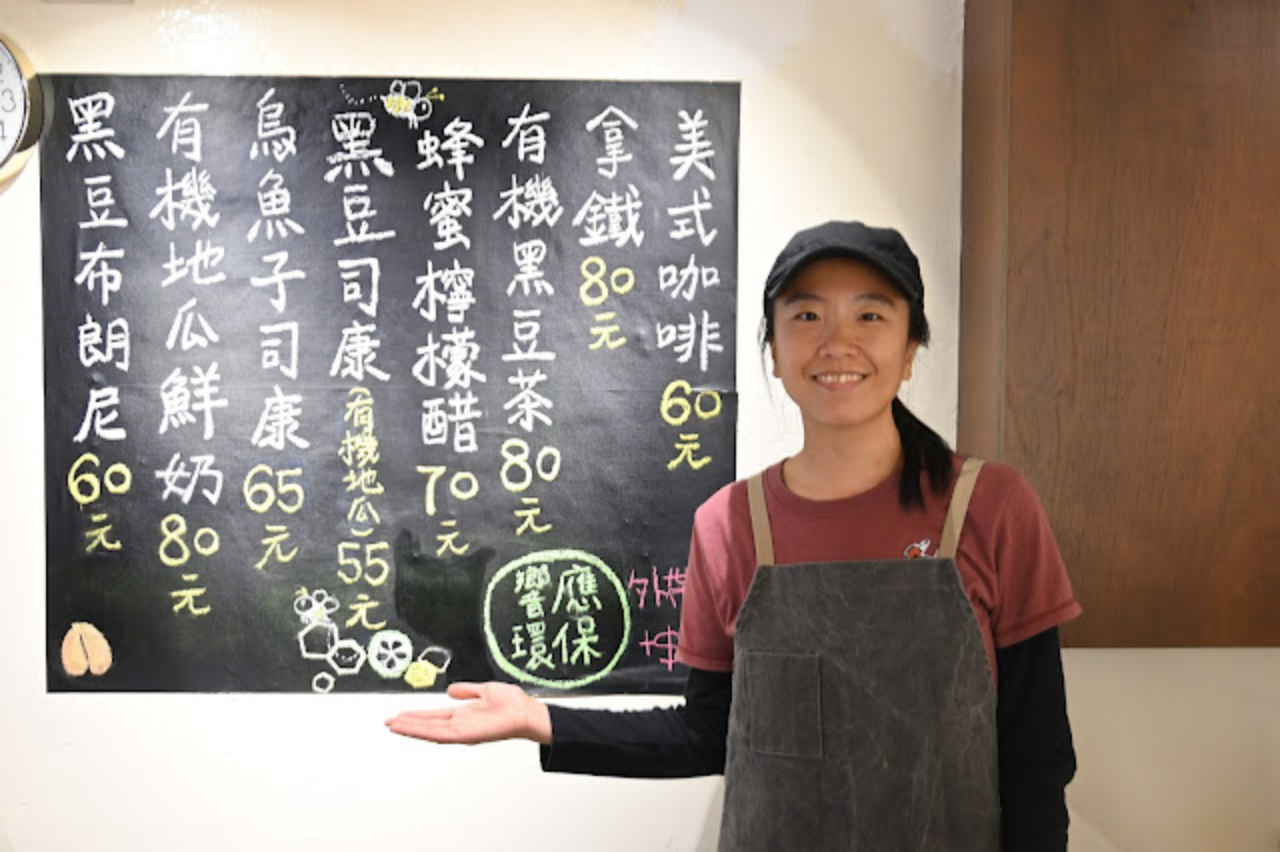 美式咖啡60元
拿鐵80元
有機黑豆茶80元
蜂蜜檸檬醋70元
黑豆司康(有機地瓜)55元
烏魚子司康65元
有機地瓜鮮奶80元
黑豆布朗尼60元
響應
環保
外帶
+$
3
4